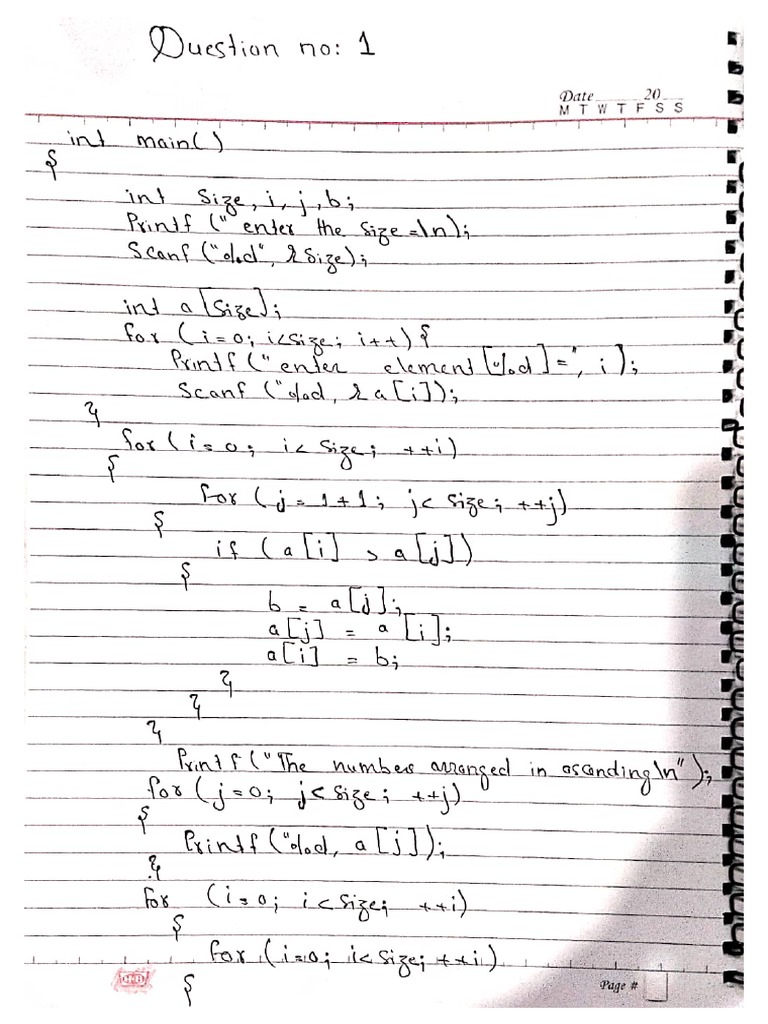 Question no: 1
Date 20
M T W T F S S
int main()
{
int size, i, j, b;
Printf (" enter the size =\n);
Scanf ("%d", &size);
int a [size];
for (i=0; i<size; i++) {
Printf (" enter element [%d] =", i);
Scanf ("%d, & a [i]);
}
for (i=0; i< size; ++i)
{
for (j= 1+1; j< size; ++j)
{
if (a[i] > a[j])
{
b = a[j];
a[j] = a [i];
a[i] = b;
}
}
}
Printf ("The numbers arranged in ascanding \n");
for (j=0; j<size; ++j)
{
Printf ("%d, a [j]);
}
for (i=0; i<size; ++i)
{
for (i=0; i<size; ++i)
{
Page #